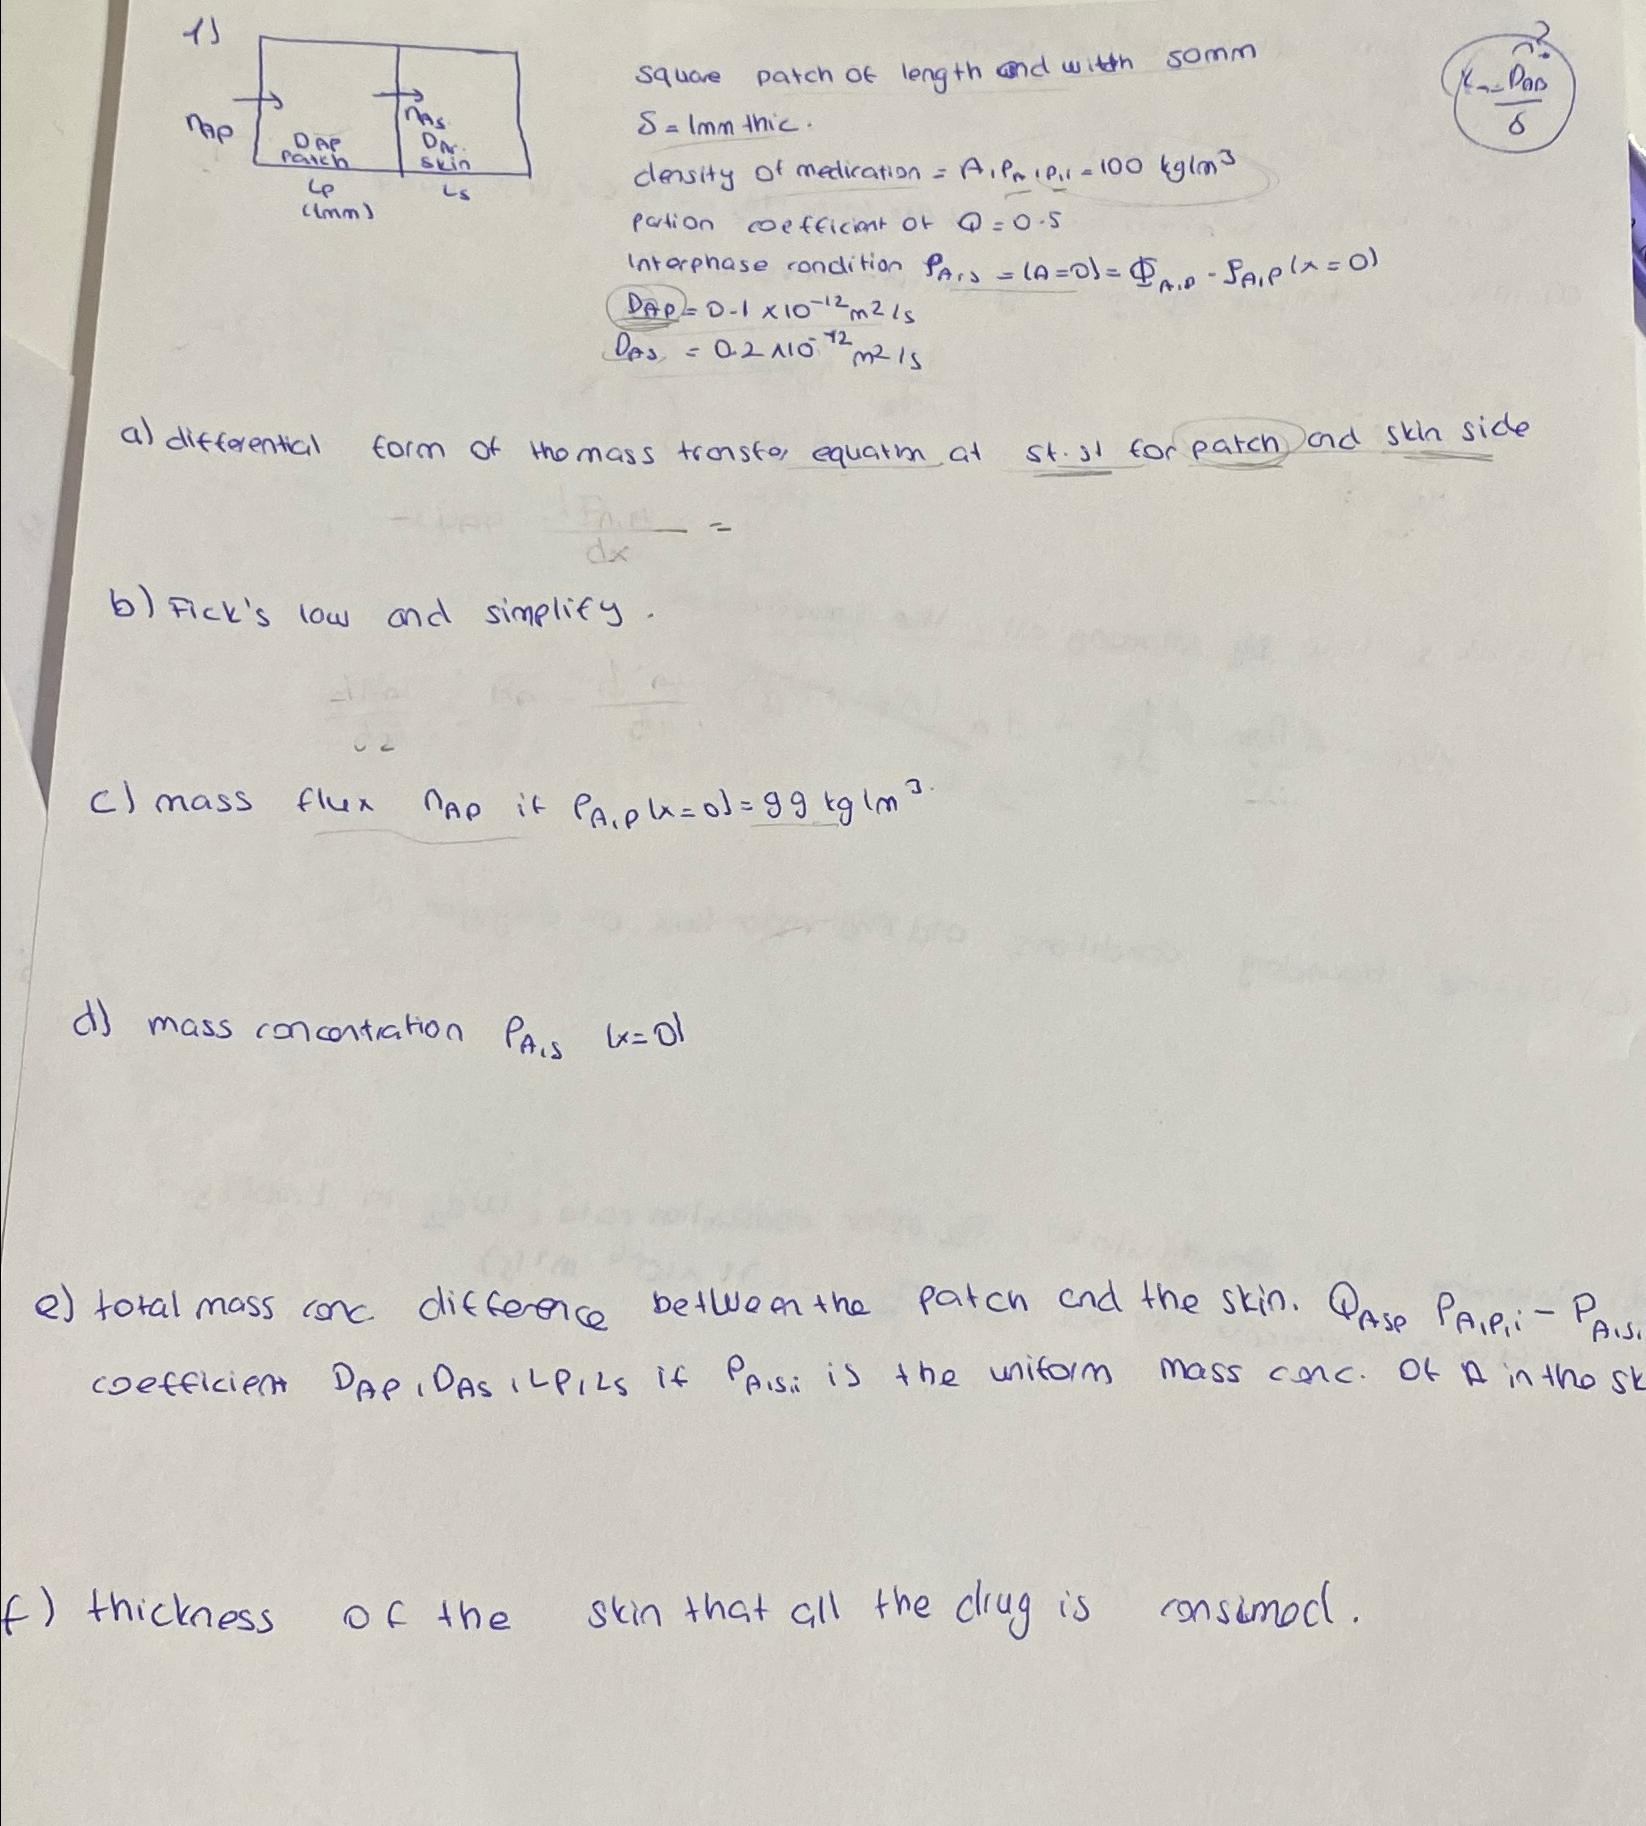 1)
square patch of length and witth 50mm
δ = 1mm thic.
density of medication = A, ρA,P,i = 100 kg/m³
partion coefficient of Q = 0.5
Interphase condition ρA,s = (A=0) = ΦA,P - ρA,P (x=0)
DAP = 0.1 x10⁻¹² m²/s
DAS = 0.2 x10⁻¹² m²/s
nAP
DAP
patch
Lp
(1mm)
nAs
DAs
skin
Ls
n?
DAB
δ
a) differential form of the mass transfer equatm at st. st for patch and skin side
dx =
b) Fick's low and simplify.
c) mass flux nAP if ρA,P (x=0) = 99 kg/m³.
d) mass concentration ρA,s (x=0)
e) total mass conc. difference between the patch and the skin. QASP ρA,P,i - ρA,s,
coefficient DAP, DAS, LP, LS if ρA,s,i is the uniform mass conc. of A in the sk
f) thickness of the skin that all the drug is consumed.